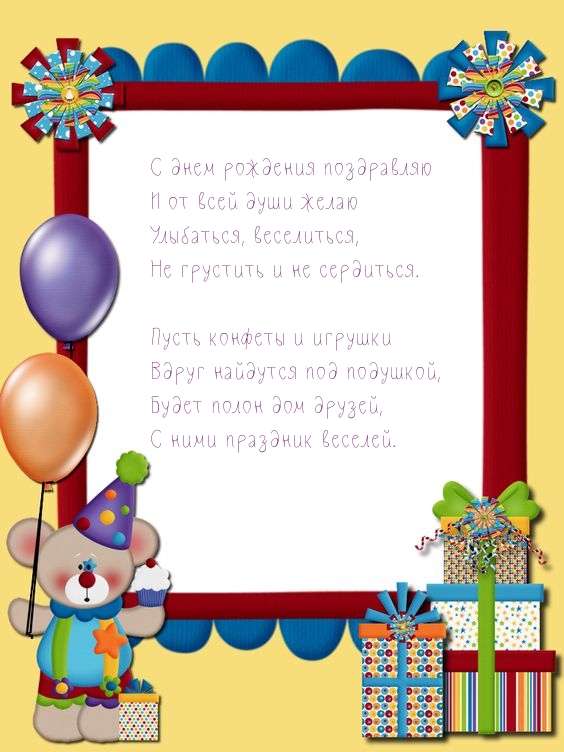 С днем рождения поздравляю
И от всей души желаю
Улыбаться, веселиться,
Не грустить и не сердиться.
Пусть конфеты и игрушки
Вдруг найдутся под подушкой,
Будет полон дом друзей,
С ними праздник веселей.